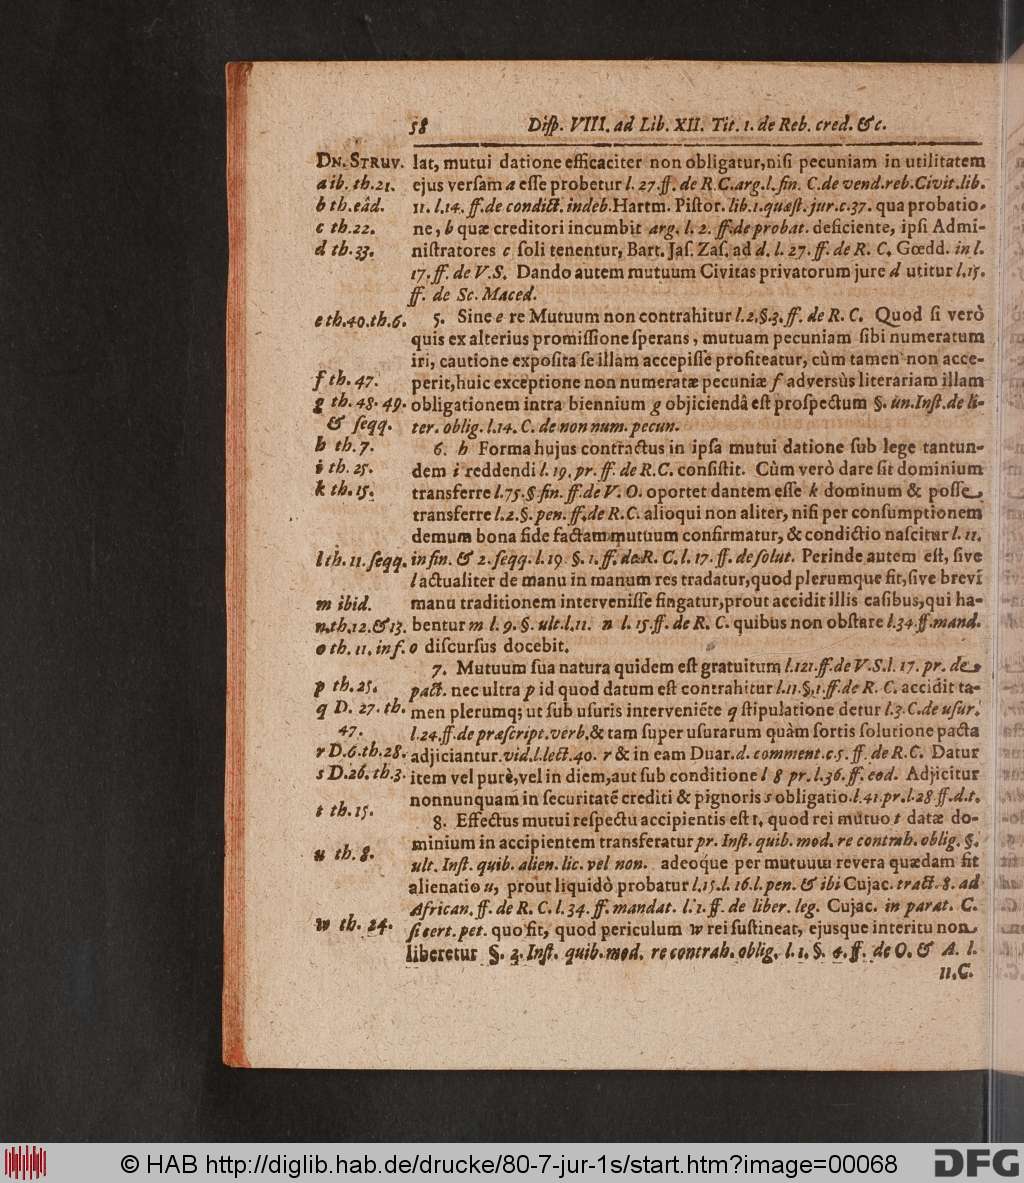 58 Diſp. VIII. ad Lib. XII. Tit. 1. de Reb. cred. &c.
DN. STRUV. lat, mutui datione efficaciter non obligatur, niſi pecuniam in utilitatem
a ib. th. 21. ejus verſam a eſſe probetur l. 27. ff. de R. C. arg. l. fin. C. de vend. reb. Civit. lib.
b th. eâd. 11. l. 14. ff. de condict. indeb. Hartm. Piſtor. lib. 1. quæſt. jur. c. 37. qua probatio-
c th. 22. ne, b quæ creditori incumbit arg. l. 2. ff. de probat. deficiente, ipſi Admi-
d th. 33. niſtratores c ſoli tenentur, Bart. Jaſ. Zaſ. ad d. l. 27. ff. de R. C. Gœdd. in l.
17. ff. de V. S. Dando autem mutuum Civitas privatorum jure d utitur l. 15.
ff. de Sc. Maced.
e th. 40. th. 6. 5. Sine e re Mutuum non contrahitur l. 2. §. 3. ff. de R. C. Quod ſi verò
quis ex alterius promiſſione ſperans, mutuam pecuniam ſibi numeratum
iri, cautione expoſita ſe illam accepiſſe profiteatur, cùm tamen non acce-
f th. 47. perit, huic exceptione non numeratæ pecuniæ f adversùs literariam illam
g th. 48. 49. obligationem intra biennium g objiciendâ eſt proſpectum §. un. Inſt. de li-
& ſeqq. ter. oblig. l. 14. C. de non num. pecun.
h th. 7. 6. h Forma hujus contractus in ipſa mutui datione ſub lege tantun-
i th. 25. dem i reddendi l. 19. pr. ff. de R. C. conſiſtit. Cùm verò dare ſit dominium
k th. 15. transferre l. 75. § fin. ff. de V. O. oportet dantem eſſe k dominum & poſſe
transferre l. 2. §. pen. ff. de R. C. alioqui non aliter, niſi per conſumptionem
demum bona fide factam mutuum confirmatur, & condictio naſcitur l. 11.
l th. 11. ſeqq. in fin. & 2. ſeqq. l. 19 §. 1. ff. de R. C. l. 17. ff. de ſolut. Perinde autem eſt, ſive
l actualiter de manu in manum res tradatur, quod plerumque fit, ſive brevi
m ibid. manu traditionem interveniſſe fingatur, prout accidit illis caſibus, qui ha-
n th. 12. & 13. bentur m l. 9. §. ult. l. 11. n l. 15. ff. de R. C. quibus non obſtare l. 34. ff. mand.
o th. 11. inf. o diſcurſus docebit.
7. Mutuum ſua natura quidem eſt gratuitum l. 121. ff. de V. S. l. 17. pr. de
p th. 25. pact. nec ultra p id quod datum eſt contrahitur l. 11. §. 1. ff. de R. C. accidit ta-
q D. 27. th. men plerumq; ut ſub uſuris interveniēte q ſtipulatione detur l. 3. C. de uſur.
47. l. 24. ff. de præſcript. verb. & tam ſuper uſurarum quàm ſortis ſolutione pacta
r D. 6. th. 28. adjiciantur. vid. l. lect. 40. r & in eam Duar. d. comment. c. 5. ff. de R. C. Datur
s D. 26. th. 3. item vel purè, vel in diem, aut ſub conditione l 8 pr. l. 36. ff. eod. Adjicitur
nonnunquam in ſecuritatē crediti & pignoris s obligatio. l. 41. pr. l. 28 ff. d. t.
t th. 15. 8. Effectus mutui reſpectu accipientis eſt 1, quod rei mutuo t datæ do-
minium in accipientem transferatur pr. Inſt. quib. mod. re contrah. oblig. §.
u th. 8. ult. Inſt. quib. alien. lic. vel non. adeoque per mutuum revera quædam fit
alienatio u, prout liquidò probatur l. 15. l. 16. l. pen. & ibi Cujac. tract. 8. ad
African. ff. de R. C. l. 34. ff. mandat. l. 1. ff. de liber. leg. Cujac. in parat. C.
w th. 24. ſi cert. pet. quo fit, quod periculum w rei ſuſtineat, ejusque interitu non
liberetur §. 2. Inſt. quib. mod. re contrah. oblig. l. 1. §. 4. ff. de O. & A. l.
11. C.
© HAB http://diglib.hab.de/drucke/80-7-jur-1s/start.htm?image=00068
DFG